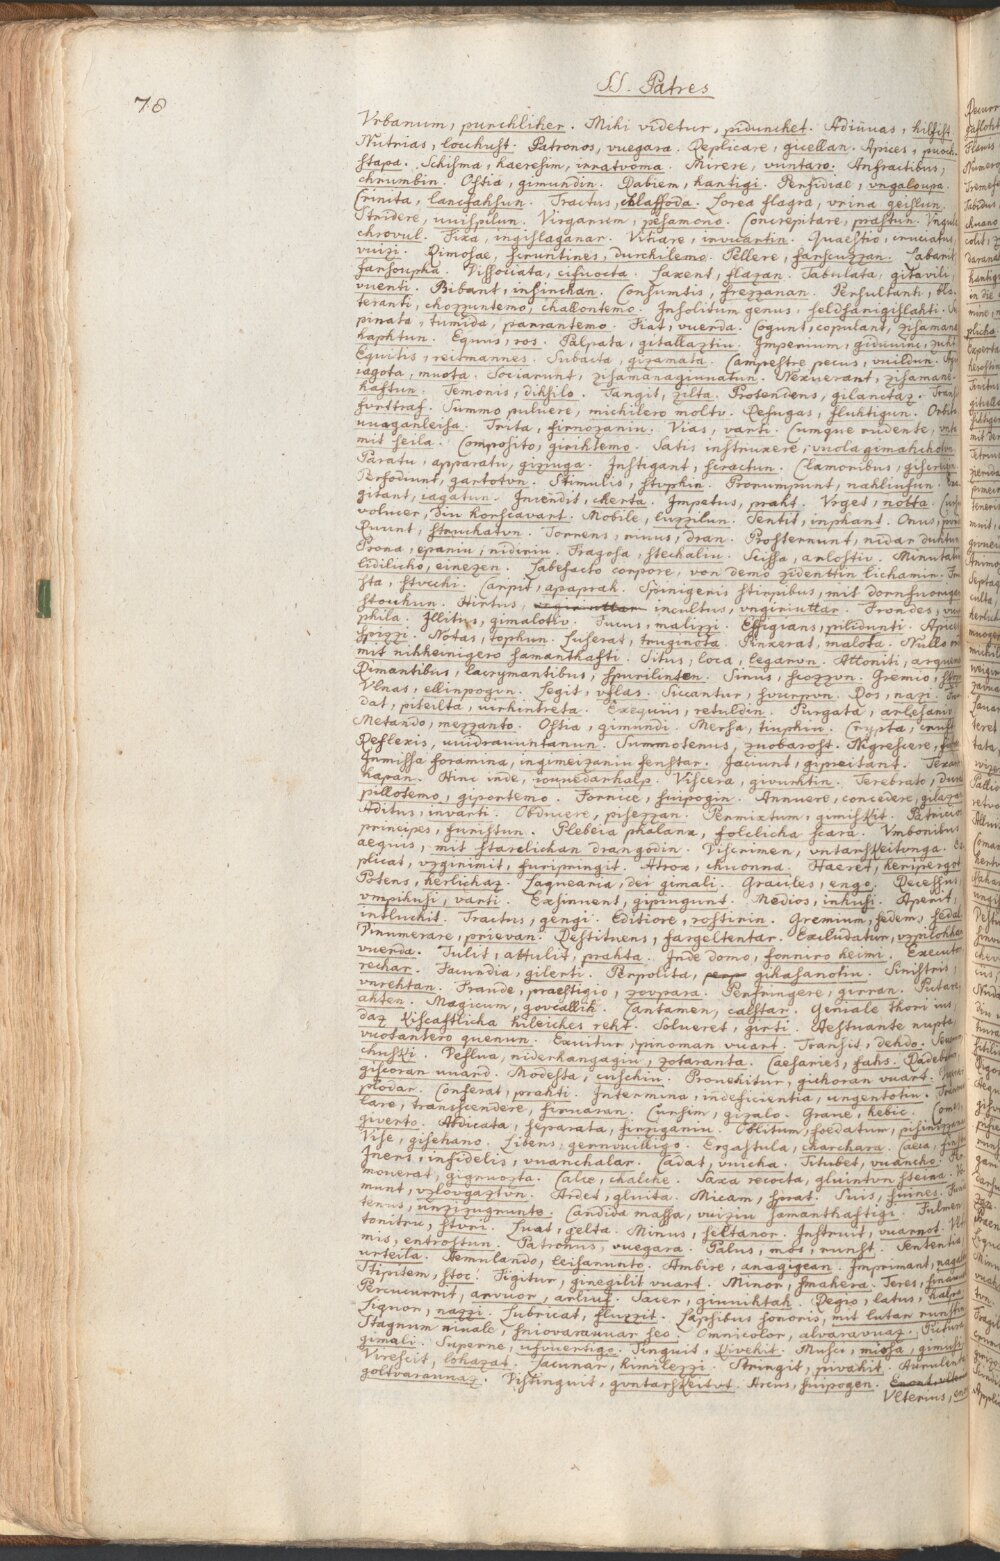 SS. Patres
78
Vrbanum, purchliher. Mihi videtur, pidunchet. Adiuuas, hilfist.
Nutrias, locchust. Patronos, vuegara. Replicare, gicellan. Apices, puoch-
stapa. Schisma, haeresim, irratvoma. Mirere, vuntaro. Anfractibus,
chrumbin. Ostia, gimundin. Rabiem, hantigi. Perfidiae, vngaloupa.
Crinita, lancfahsun. Tractus, chlaffoda. Lorea flagra, vrina geislun.
Stridere, uuispilun. Virgarum, pesamono. Concrepitare, prastun.
chrovul. Fixa, ingislaganar. Vitiare, invuartin. Quaestio, cruciatus,
vuizi. Rimosae, scruntines, durchilemo. Pellere, farscuzzan. Labarit
farsoupha. Dissociata, cisuocta. Iaxent, flazan. Tabulata, gitavili,
vuenti. Bibant, insinchan. Consumtis, frezzanan. Persultanti,
teranti, chozzuntemo, challontemo. Insolitum genus, seldsanigislahti.
pinata, tumida, parrantemo. Fiat, vuerda. Cogunt, copulant, zisamane
haphtun. Equus, ros. Palpata, gitallaztiu. Imperium, giduuinc,
Equitis, reitmannes. Subacta, gizamata. Campestre pecus, vuildun.
iagota, muota. Sociarunt, zisamanagiuuatun. Nexuerant, zisamane-
haftun. Temonis, dihsilo. Tangit, zilta. Protendens, gilanctaz.
furttraf. Summo puluere, michilero moltv. Refugas, fluhtigun. Orbita
uuaganleisa. Trita, firnozaniu. Vias, varti. Cumque rudente,
mit seila. Composito, girihtemo. Satis instruxere, vuola gimahchotun.
Paratu, apparatu, gizzuga. Instigant, scractun. Clamoribus,
Perfodiunt, gartotun. Stimulis, stuphin. Prorumpunt, nahliufun.
gitant, iagatun. Incendit, cherta. Impetus, praht. Vrges, notta.
volucer, diu horscavart. Mobile, luzzilun. Sentit, inphant. Onus,
Ruunt, struchatun. Torrens, riuus, dran. Prosternunt, nidar duhtun.
Prona, epaniu, nidiriu. Fragosa, stechaliu. Scissa, arlostiv. Minutatim
lidilicho, einezen. Labefacto corpore, von demo zidenttin lichamin.
sta, stucchi. Carpit, apaprah. Spinigeris stirpibus, mit dornsuorigen
stocchun. Hirtus, incultus, vngiriuttar. Frondes,
phila. Illitus, gimalotiv. Fucus, malizzi. Effigians, pilidunti. Apices
spizzi. Notas, tophun. Luserat, truginota. Pinxerat, malota. Nullo
mit nihheinigero samanthafti. Situs, loca, leganvn. Attoniti,
Rimantibus, lacrymantibus, spurilinten. Sinus, scozzvn. Gremio,
Vlnas, ellinpogin. Legit, vzlas. Siccantur, suurpvn. Ros, nazi.
dat, piteilta, virhintreta. Exequiis, retuldin. Purgata, arlesaniv.
Metando, mezzanto. Ostia, gimundi. Mersa, tiuphiu. Crypta, cruft.
Reflexis, uuidrauuntanun. Summotenus, zuobarost. Nigrescere,
Inmissa foramina, ingimeizaniu fenstar. Iaciunt, gipreitant.
hapan. Hinc inde, iouuedarhalp. Viscera, givurhtin. Terebrato,
pillotemo, giportemo. Fornice, suipogin. Annuere, concedere,
Aditus, invarti. Obducere, pisezzan. Permixtum, gimiskit. Patricios
principes, furistun. Plebeia phalanx, folclicha scara. Vmbonibus
aequis, mit starclichan drangodin. Discrimen, vntarskeitunga.
plicat, vzginimit, furipringit. Atrox, chuonna. Haeret,
Potens, herlichaz. Laquearia, dei gimali. Graciles, engo. Recessus,
vmpihusi, varti. Exsinuent, gipingunt. Medios, inhusi. Aperit,
intluchit. Tractus, gengi. Editiore, rostirin. Gremium, sedem,
Dinumerare, prievan. Destituens, fargeltentar. Excludatur,
vuerda. Tulit, attulit, prahta. Inde domo, fonniro heimi. Executor
rechar. Facundia, gilerti. Perpolita, gihasanotiu. Sinistris,
vnrehtan. Fraude, praestigio, zoupara. Perstringere, girran. Putare,
ahten. Magicum, govcallih. Cantamen, calstar. Geniale thori ius,
daz kiscaftlicha hileiches reht. Solueret, girti. Aestuante nupta,
vuotantero quenun. Exuitur, pinoman vuart. Transit, dehdo.
chuski. Deflua, niderhangagiu, zotaranta. Caesaries, fahs.
giscoran uuard. Modesta, cuschiu. Prouehitur, gihoran vuart.
plodar. Conferat, prahti. Intermina, indeficientia, ungentotiu.
lare, transcendere, firuaran. Cursim, gizalo. Graue, hebic.
giverto. Abdicata, separata, firziganiu. Oblitum, foedatum,
Vise, gisehano. Libens, gernvuilligo. Ergastula, charchara. Caeca,
Iners, infidelis, vuanchalar. Cadat, vuicha. Titubet, vuancho.
monerat, gigruozta. Calce, chalche. Saxa recocta, gluintun steina.
munt, vzlovgaztvn. Ardet, gluita. Micam, sprat. Suis, suines.
tenus, unzizugrunte. Candida massa, vuiziu samanthaftigi. Fulmen
tonitru, sturi. Luat, gelta. Minus, seltanor. Instruit, vuarnot.
mis, entrostun. Patronus, vuegara. Palus, mos, runst. Sententia,
urteila. Aemulando, leisanunto. Ambire, anagigean. Imprimant,
Stipitem, stoc. Figitur, ginegilit vuart. Minor, smahera. Teres,
Percucurrit, arvuor, arliuf. Sacer, giuuihtah. Regio, latus, halpa.
Liquor, nazzi. Lubricat, fluzzit. Lapsibus sonoris, mit lutan runstin
Stagnum niuale, sniovaravuar seo. Omnicolor, alvaravuaz. Picturae
gimali. Superne, ufvuertigo. Tinguit, kivehit. Musci, miosa,
Virescit, lohazat. Lacunar, himilezzi. Stringit, pivahit. Aurulenta
goltvaravuaz. Distinguit, guntarskeitot. Arcus, suipogen.
Vlterius,